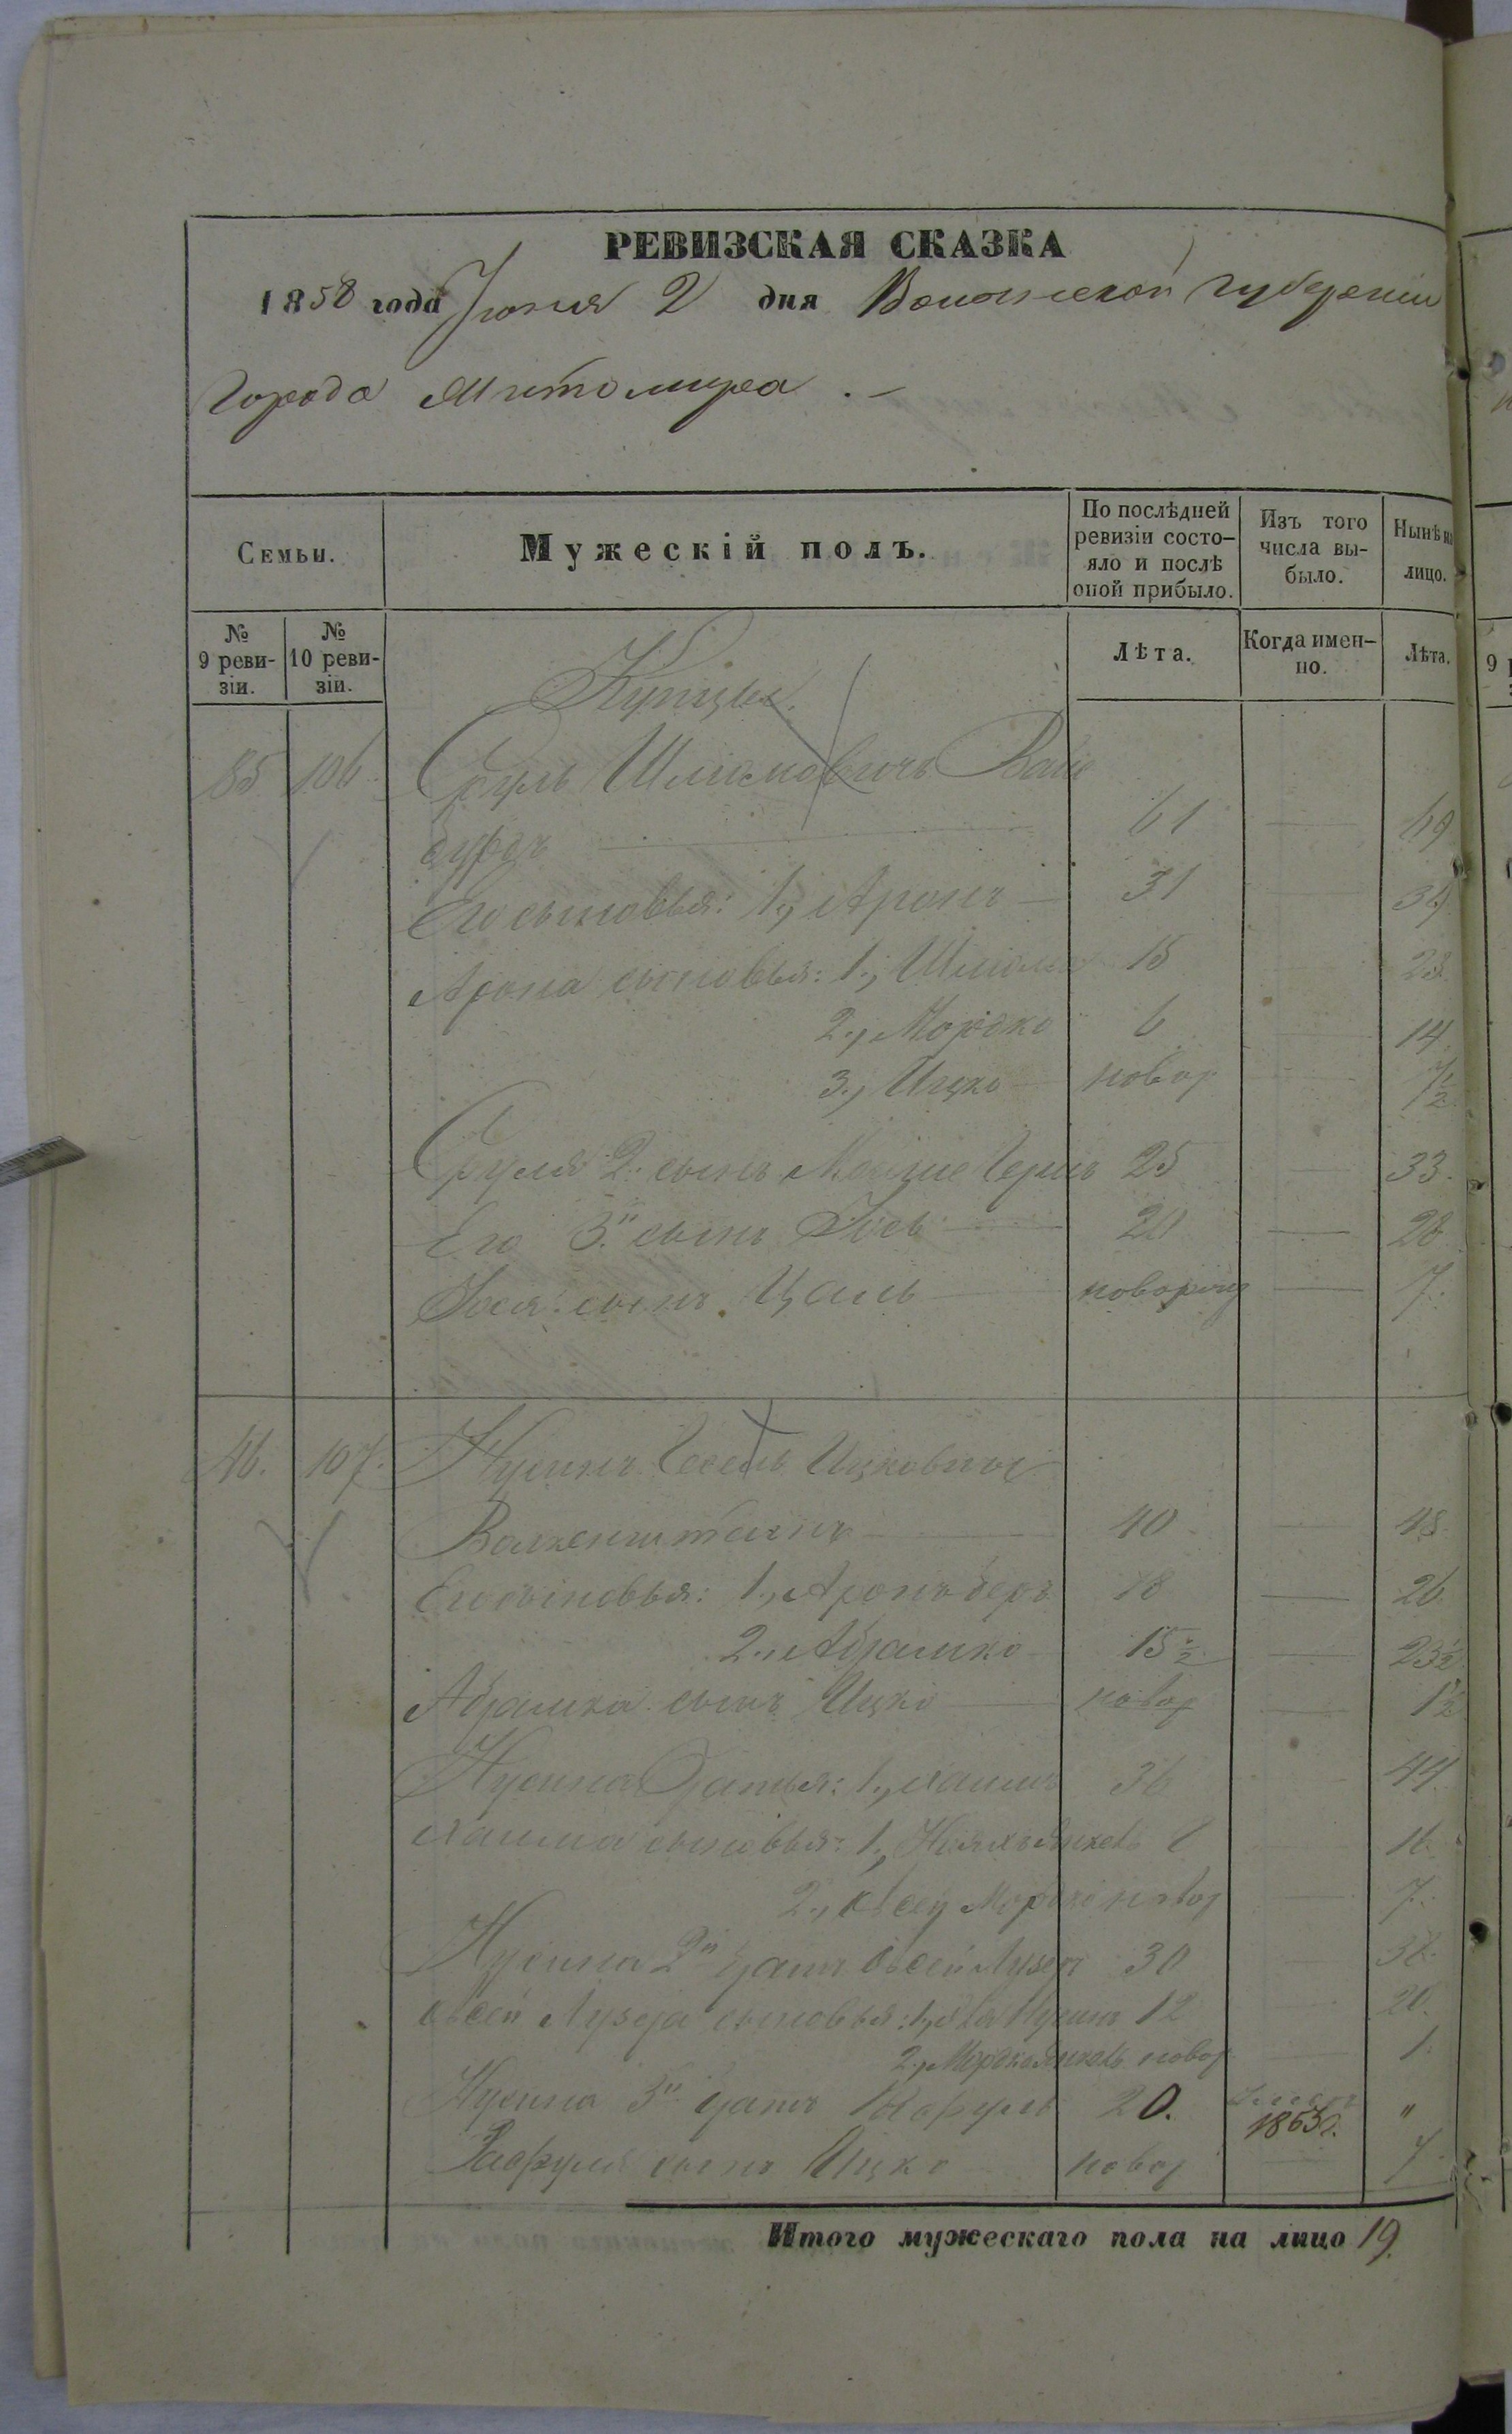 РЕВИЗСКАЯ СКАЗКА
1858 года Іюня 2 дня Волынской губерніи
Города Житомира .–
Семьи.
Мужескій полъ.
По послѣдней ревизіи состо-
яло и послѣ
оной прибыло.
Изъ того
числа вы-
было.
Нынѣ на
лицо.
№
9 реви-
зіи.
№
10 реви-
зіи.
Лѣта.
Когда имен-
но.
Лѣта.
Купцы.
85 106. Сруль Шлiомовичъ
61 69
Его сыновья: 1., Аронъ 31 39
Арона сыновья: 1., Шліома 15 23.
2., Мордко 6 14.
3., Ицко новор 7½
Сруля 2. сынъ Мойше Герш 25 33.
Его 3й сынъ Іось 20 28
Іося сынъ Цаль новорож 7.
46. 107. Нусинъ Ицковичъ
40 48.
Его сыновья: 1., Аронъ Беръ 18 26
2., Абрамко 15½ 23½
Абрамка сынъ Ицко новор 1½
Нусина братья: 1., Хаимъ 36 44.
Хаима сыновья: 1., 8 16.
2., Овсей Мордко новор 7.
Нусина 2й братъ Овсей Лузеръ 30 38.
Овсей Лузера сыновья: 1., Нусинъ 12 20.
2., Мордко новор 1.
Нусина 3й братъ 20. 1853г. "
сынъ Ицко новор 7.
Итого мужескаго пола на лицо 19.